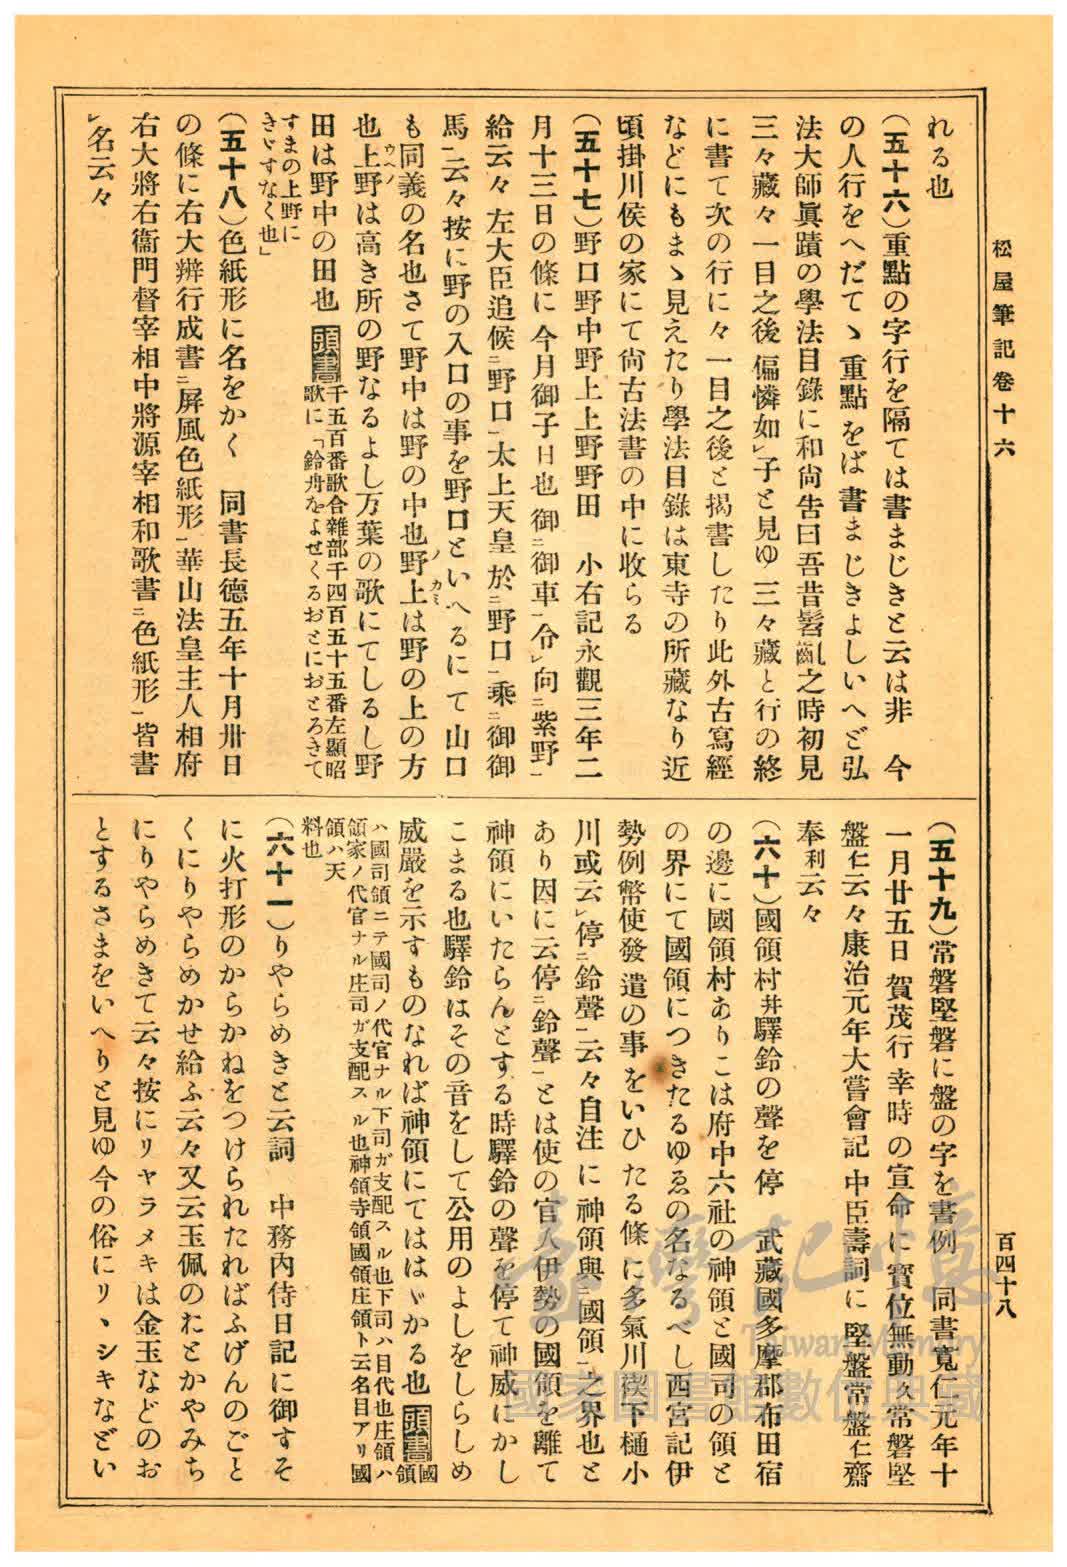 松屋筆記卷十六
百四十八
れる也
(五十六)重點の字行を隔ては書まじきと云は非　今
の人行をへだてゝ重點をば書まじきよしいへど弘
法大師眞蹟の學法目錄に和尙告曰吾昔髫齓之時初見
三々藏々一目之後偏憐如レ子と見ゆ三々藏と行の終
に書て次の行に々一目之後と揭書したり此外古寫經
などにもまゝ見えたり學法目錄は東寺の所藏なり近
頃掛川侯の家にて尙古法書の中に收らる
(五十七)野口野中野上上野野田　小右記永觀三年二
月十三日の條に今月御子日也御二御車一令レ向二紫野一
給云々左大臣追候二野口一太上天皇於二野口一乘二御御
馬一云々按に野の入口の事を野口といへるにて山口
も同義の名也さて野中は野の中也野上ノカミは野の上の方
也上野ウヘノは高き所の野なるよし万葉の歌にてしるし野
田は野中の田也 頭書 千五百番歌合雜部千四百五十五番左顯昭
歌に「鈴舟をよせくるおとにおとろきて
すまの上野に
きゞすなく也」
(五十八)色紙形に名をかく　同書長德五年十月卅日
の條に右大辨行成書二屏風色紙形一華山法皇主人相府
右大將右衞門督宰相中將源宰相和歌書二色紙形一皆書
レ名云々
(五十九)常磐堅磐に盤の字を書例　同書寬仁元年十
一月廿五日賀茂行幸時の宣命に寳位無動久常磐堅
盤仁云々康治元年大嘗會記中臣壽詞に堅盤常盤仁齋
奉利云々
(六十)國領村幷驛鈴の聲を停　武藏國多摩郡布田宿
の邊に國領村ありこは府中六社の神領と國司の領と
の界にて國領につきたるゆゑの名なるべし西宮記伊
勢例幣使發遣の事をいひたる條に多氣川禊下樋小
川或云レ停二鈴聲一云々自注に神領與二國領一之界也と
あり因に云停二鈴聲一とは使の官人伊勢の國領を離て
神領にいたらんとする時驛鈴の聲を停て神威にかし
こまる也驛鈴はその音をして公用のよしをしらしめ
威嚴を示すものなれば神領にてははゞかる也 頭書 國
領
ハ國司領ニテ國司ノ代官ナル下司ガ支配スル也下司ハ目代也庄領ハ
領家ノ代官ナル庄司ガ支配スル也神領寺領國領庄領ト云名目アリ國
領ハ天
料也
(六十一)りやらめきと云詞　中務內侍日記に御すそ
に火打形のからかねをつけられたればふげんのごと
くにりやらめかせ給ふ云々又云玉佩のおとかやみち
にりやらめきて云々按にリヤラメキは金玉などのお
とするさまをいへりと見ゆ今の俗にリヽシキなどい
臺灣記憶
Taiwan Memory
國家圖書館數位典藏